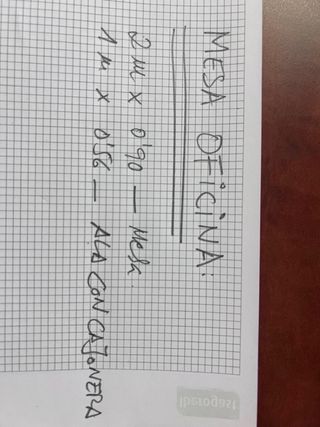 MESA OFICINA:
2 M x 0'90 — Mesa.
1 M x 0'56 — ALA CON CAJONERA
Iberogast